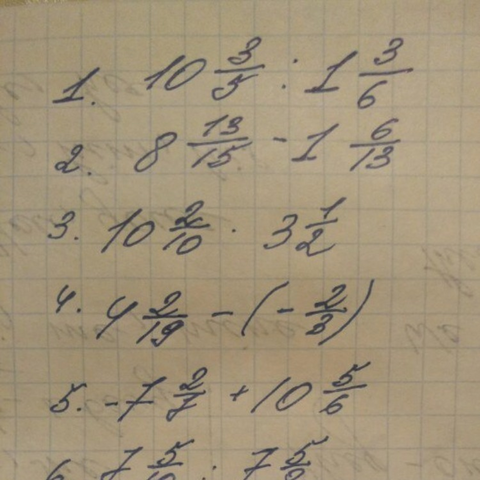 1. 10 3/5 : 1 3/6
2. 8 13/15 - 1 6/13
3. 10 2/10 · 3 1/2
4. 4 2/19 - (- 2/3)
5. -7 2/7 + 10 5/6